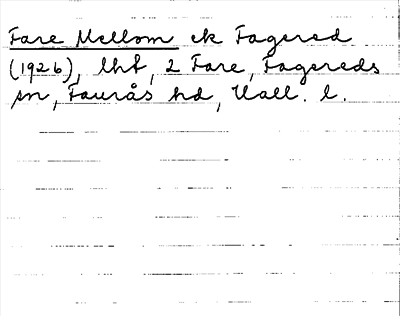 Fare Mellom ek Fagered
(1926), lht, 2 Fare, Fagereds
sn, Faurås hd, Hall. l.